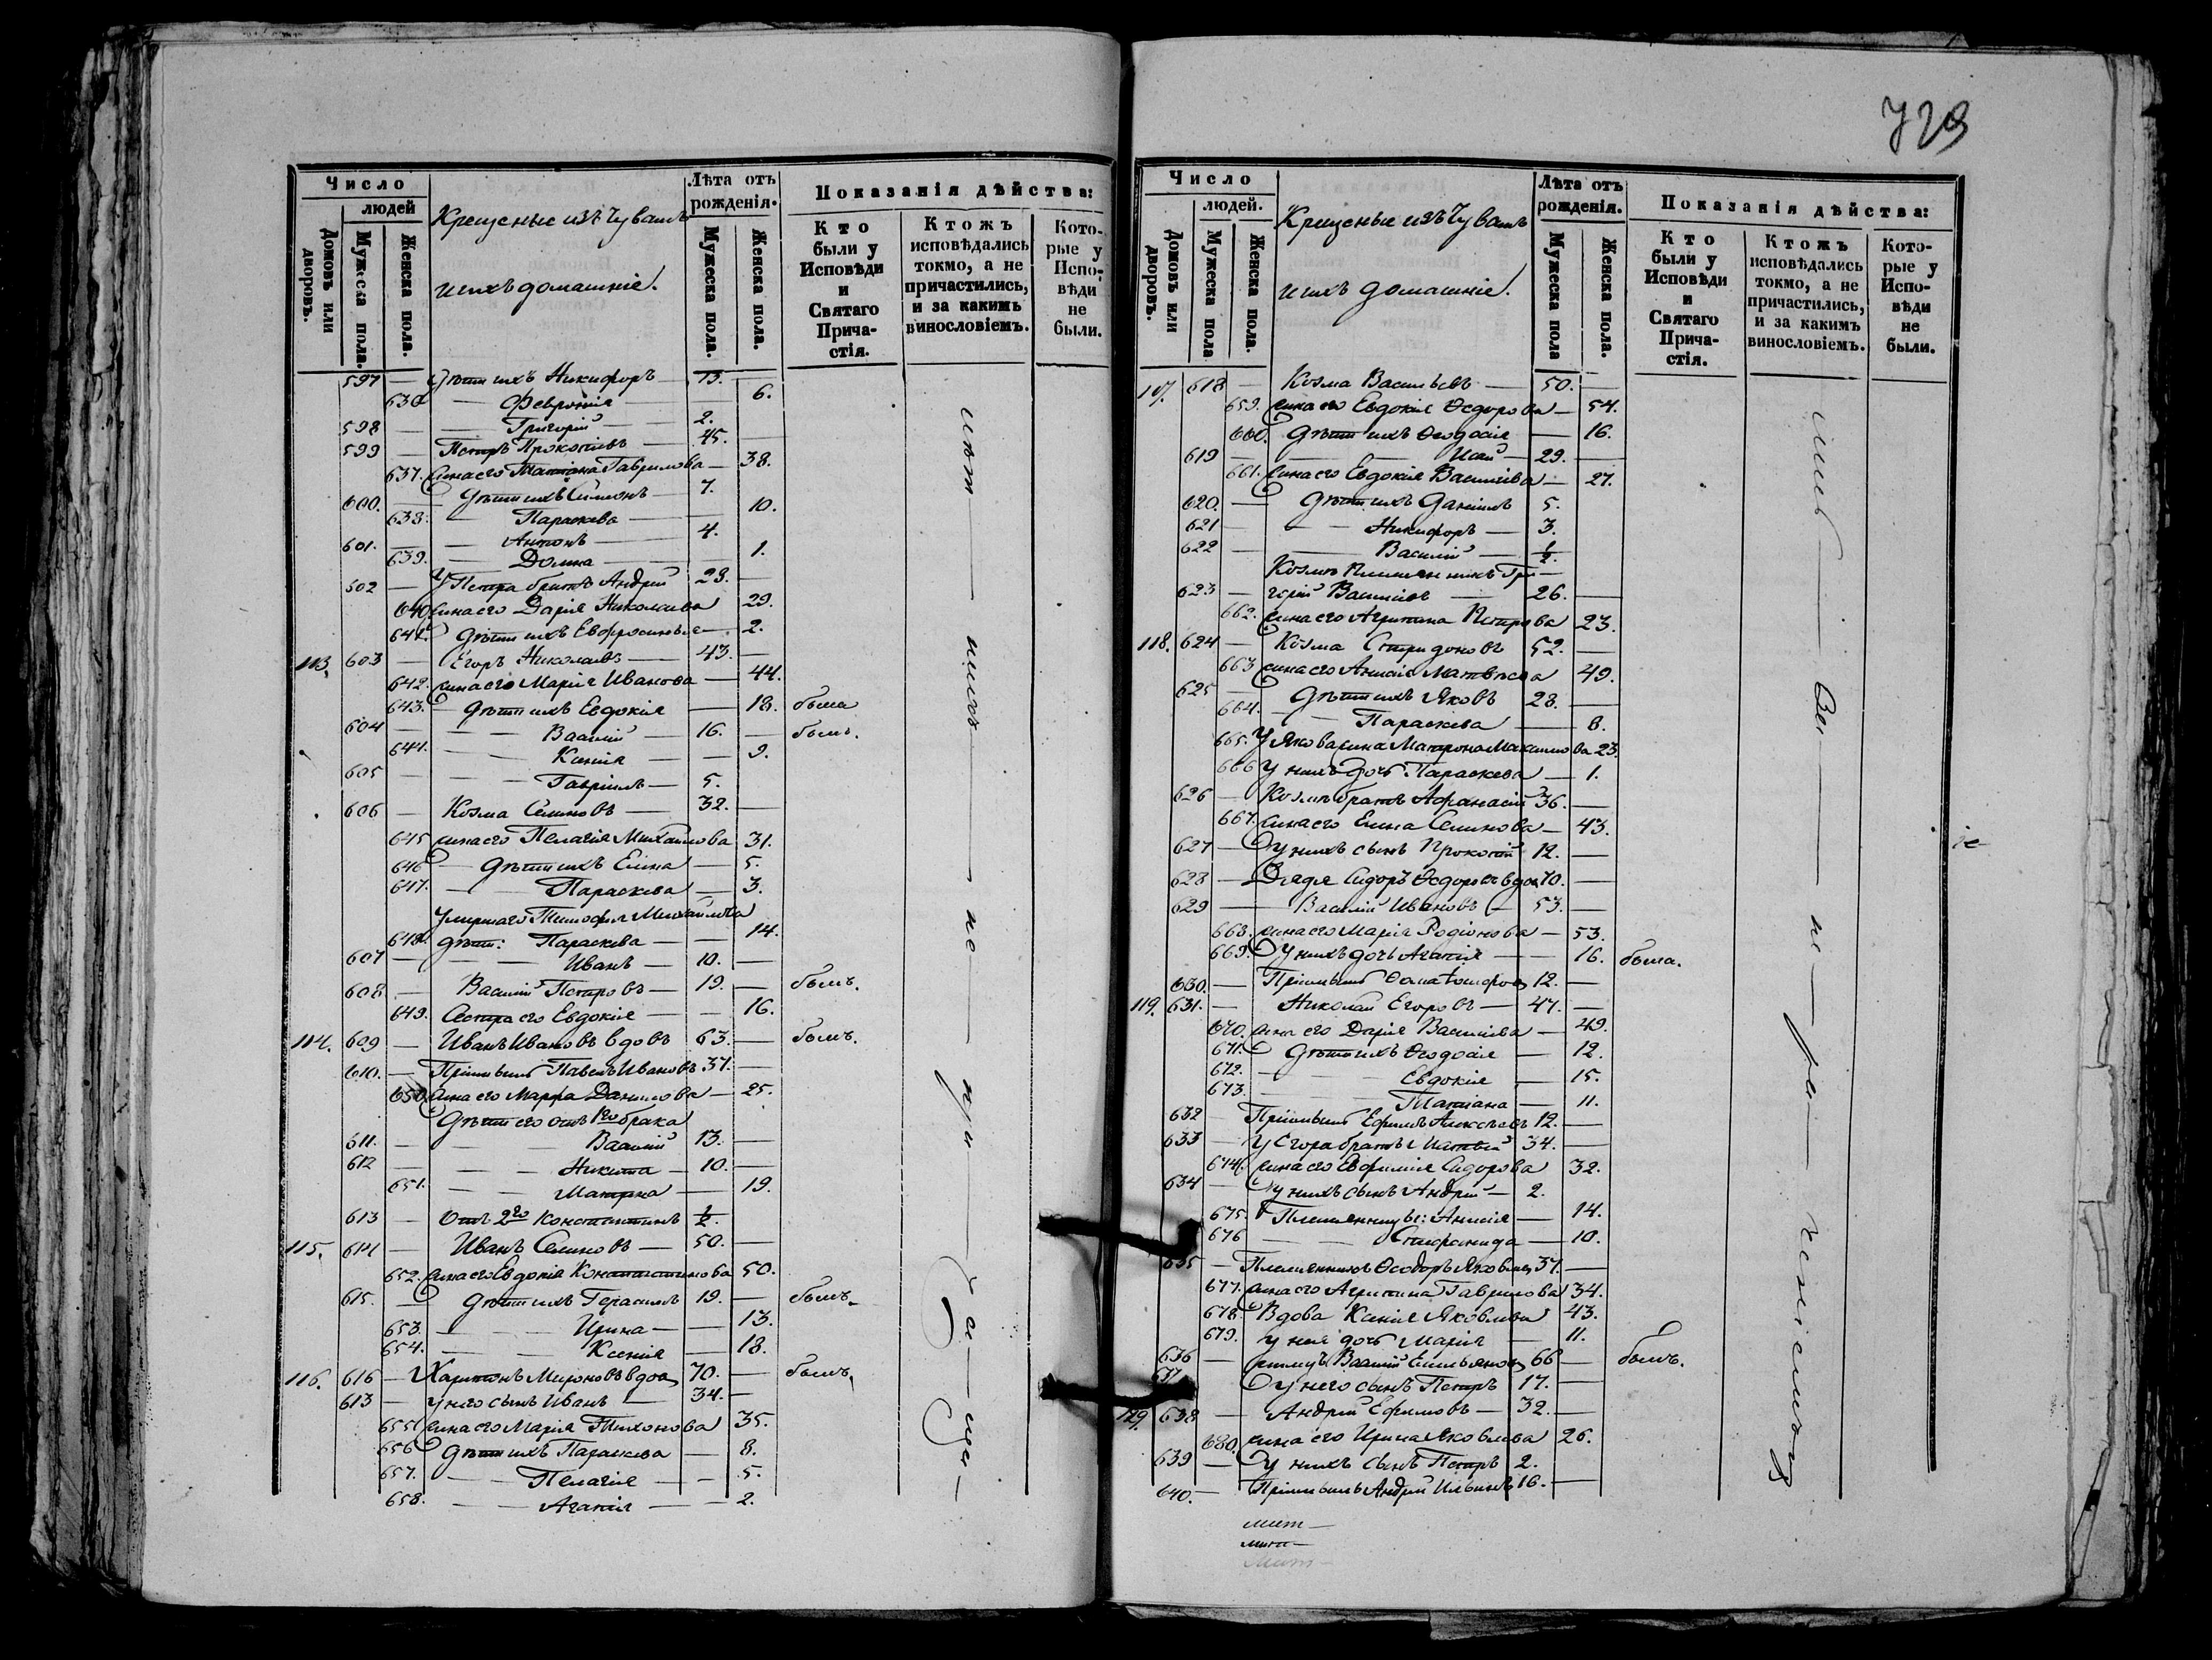 729
Число
людей
Домовъ или дворовъ.
Мужеска пола.
Женска пола.
Крещеные изъ Чувашъ
и ихъ домашніе.
Лѣта отъ рожденія.
Мужеска пола.
Женска пола.
Показанія дѣйства:
Кто были у Исповѣди и Святаго Причастія.
Ктожъ исповѣдались токмо, а не причастились, и за какимъ винословіемъ.
Которые у Исповѣди не были.
597 — Дѣти ихъ Никифоръ — 13. —
636 — Февронія — 6.
598 — Григорій — 2.
599 — Петръ Прокопіевъ — 45. —
637. жена его Татіана Гаврилова — 38.
600. — дѣти ихъ Симонъ — 7.
638. — Параскева — 10.
601. — Антонъ — 4.
639. — Домна — 1.
502 — У Петра братъ Андрей 28. —
640. жена его Дарія Николаева 29.
641. дѣти ихъ Евфросинья — 2.
113. 603 — Егоръ Николаевъ — 43. —
642. жена его Марія Иванова — 44.
643. — дѣти ихъ Евдокія — 18. была
604 — Василій — 16. — былъ.
644. — Ксенія — 9.
605 — Гавріилъ — 5.
606 — Козма Семеновъ — 32. —
645 жена его Пелагія Михайлова 31.
646 — дѣти ихъ Елена — 5.
647. — Параскева — 3.
Умершаго Тимофея Михайлова
648. дѣти: Параскева — 14.
607 — Иванъ — 10. —
608. — Василій Петровъ — 19. — былъ.
649. Сестра его Евдокія — 16.
114. 609 — Иванъ Ивановъ вдовъ 63. — былъ.
610. — Пріемышъ Павелъ Ивановъ 37. —
650. жена его Марфа Данилова — 25.
Дѣти его отъ 1го брака
611. — Василій 13. —
612 — Никита — 10. —
651. — Матрона — 19.
613 — Отъ 2го Константинъ ½. —
115. 614 — Иванъ Семеновъ — 50. —
652. жена его Евдокія Константинова 50.
615. — дѣти ихъ Герасимъ 19. — былъ.
653. — Ирина — 13.
654. — Ксенія — 18.
116. 616 — Харитонъ Мироновъ вдов 70. — былъ.
613 — у него сынъ Иванъ — 34. —
655 жена его Марія Тихонова 35.
656 дѣти ихъ Параскева — 8.
657. — Пелагія — 5.
658. — Агапія — 2.
Число
людей.
Домовъ или дворовъ.
Мужеска пола
Женска пола.
Крещеные изъ Чувашъ
и ихъ домашніе.
Лѣта отъ рожденія.
Мужеска пола
Женска пола.
Показанія дѣйства:
Кто были у Исповѣди и Святаго Причастія.
Ктожъ исповѣдались токмо, а не причастились, и за какимъ винословіемъ.
Которые у Исповѣди не были.
117. 618 — Козма Васильевъ — 50. —
659. жена его Евдокія Ѳедорова — 54.
660. дѣти ихъ Ѳеодосія — 16.
619 — Исай — 29. —
661. жена его Евдокія Василіева — 27.
620. — дѣти ихъ Даніилъ 5.
621 — Никифоръ — 3.
622 — Василій — ½.
Козмы племянникъ Гри —
623 — горій Василіевъ — 26. —
662. жена его Агрипина Петрова 23.
118. 624 — Козма Спиридоновъ 52. —
663 жена его Анисія Матвѣева 49.
625 — дѣти ихъ Яковъ 28. —
664. — Параскева — 8.
665. У Якова жена Матрона Максимова 23.
666 у нихъ дочь Параскева — 1.
626 — Козмы братъ Афанасій 36. —
667. жена его Елена Семенова — 43.
627 — у нихъ сынъ Прокопій 12. —
628 — Дядя Сидоръ Ѳедоровъ вдов 70. —
629 — Василій Ивановъ — 53. —
668. жена его Марія Родіонова — 53.
669. у нихъ дочь Агапія — 16. была.
630. — Пріемышъ 12. —
119. 631. — Николай Егоровъ — 47. —
670. жена его Дарія Василіева — 49.
671. дѣти ихъ Ѳеодосія — 12.
672. — Евдокія — 15.
673. — Татіана — 11.
632 Пріемышъ Ефимъ Алексѣевъ 12. —
633 — у Егора братъ Матвѣй 34. —
674. жена его Евфимія Сидорова 32.
634 — у нихъ сынъ Андрей — 2.
675. Племянницы: Анисія — 14.
676 — Степанида — 10.
635 — Племянникъ Ѳеодоръ Яковлев 37. —
677. жена его Агрипина Гаврилова 34.
678. Вдова Ксенія Яковлева 43.
679. у нея дочь Марія — 11.
636 — Василій Емельянов 66 — былъ.
у него сынъ Петръ 17. —
638 — Андрей Ефимовъ — 32. —
680. жена его Ирина Яковлева 26.
639 — у нихъ сынъ Петръ 2.
640. — Пріемышъ Андрей Ильинъ 16. —